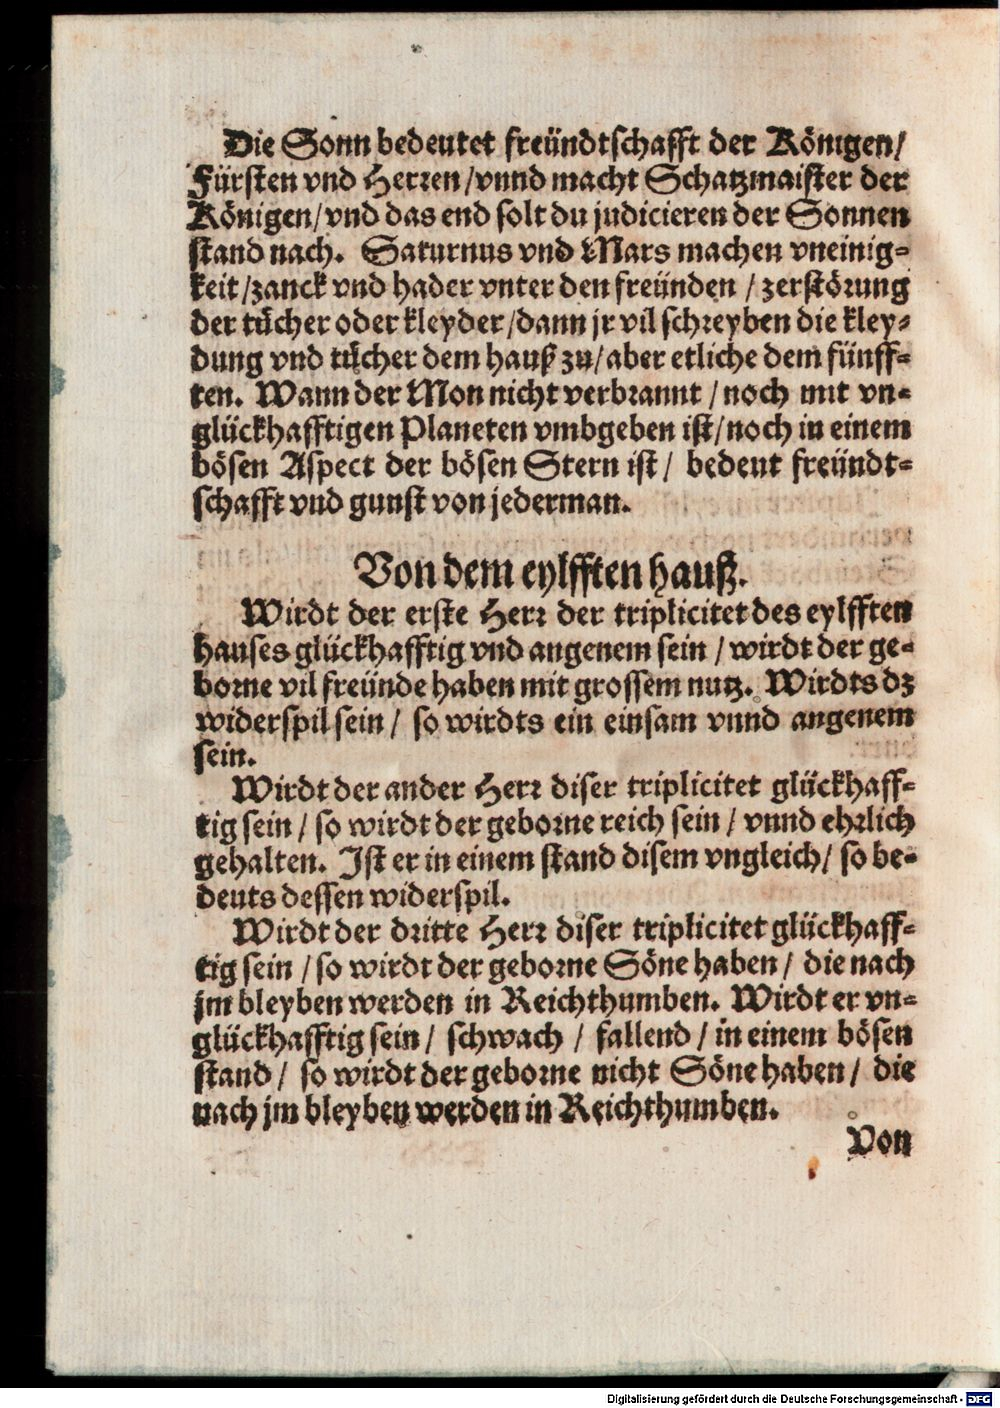 Die Sonn bedeutet freündtschafft der Königen/
Fürsten vnd Herren/vnnd macht Schatzmaister der
Königen/vnd das end solt du judicieren der Sonnen
stand nach. Saturnus vnd Mars machen vneinig-
keit/zanck vnd hader vnter den freünden / zerstörung
der tücher oder kleyder/dann jr vil schreyben die kley-
dung vnd tücher dem hauß zu/aber etliche dem fünff-
ten. Wann der Mon nicht verbrannt / noch mit vn-
glückhafftigen Planeten vmbgeben ist/noch in einem
bösen Aspect der bösen Stern ist/ bedeut freündt-
schafft vnd gunst von jederman.
Von dem eylfften hauß.
Wirdt der erste Herr der triplicitet des eylfften
hauses glückhafftig vnd angenem sein / wirdt der ge-
borne vil freünde haben mit grossem nutz. Wirdts dz
widerspil sein / so wirdts ein einsam vnnd angenem
sein.
Wirdt der ander Herr diser triplicitet glückhaff-
tig sein / so wirdt der geborne reich sein / vnnd ehrlich
gehalten. Ist er in einem stand disem vngleich/ so be-
deuts dessen widerspil.
Wirdt der dritte Herr diser triplicitet glückhaff-
tig sein / so wirdt der geborne Söne haben / die nach
jm bleyben werden in Reichthumben. Wirdt er vn-
glückhafftig sein / schwach / fallend / in einem bösen
stand / so wirdt der geborne nicht Söne haben / die
nach jm bleyben werden in Reichthumben.
Von
Digitalisierung gefördert durch die Deutsche Forschungsgemeinschaft - DFG